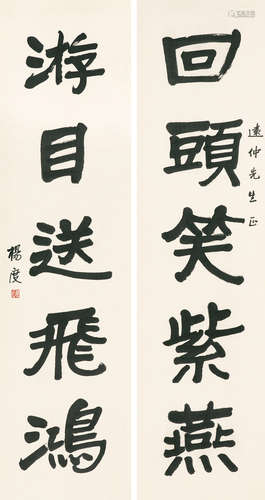 回頭笑紫燕
遠仲先生正
游目送飛鴻
楊度